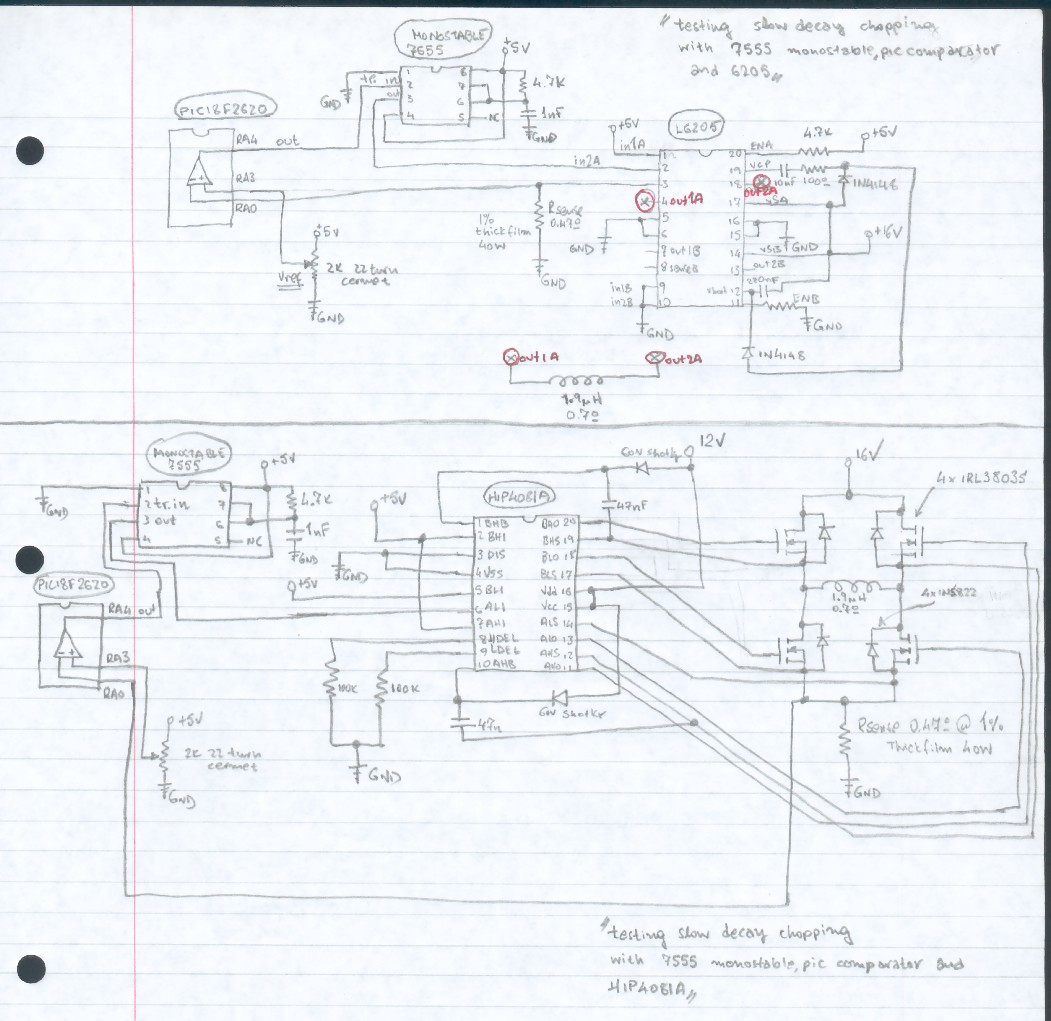 "testing slow decay chopping
with 7555 monostable, pic comparator
and 6205"
MONOSTABLE
7555
+5V
1 8
tr. in 2 7
out 3 6
4 5 NC
4.7K
1nF
GND
GND
PIC18F2620
RA4 out
RA3
RA0
+5V
2K 22 turn
cermet
Vref
GND
in2A
Rsense
0.47Ω
1%
thickfilm
40W
GND
L6205
+5V
in1A
1
2
3
4 out1A
5
6
7 out1B
8 senseB
in1B 9
in2B 10
GND
GND
20 ENA
19 VCP
18 out2A
17 VSA
16
15
14 VSB
13 out2B
Vboot 12
11 ENB
4.7K
+5V
10nF 100Ω
1N4148
GND
+16V
220nF
GND
1N4148
out1A out2A
1.9µH
0.7Ω
MONOSTABLE
7555
+5V
1 8
2 tr.in 7
3 out 6
4 5 NC
GND
4.7K
1nF
GND
PIC18F2620
RA4 out
RA3
RA0
+5V
2K 22 turn
cermet
GND
HIP4081A
+5V
GND
+5V
1 BHB
2 BHI
3 DIS
4 VSS
5 BLI
6 ALI
7 AHI
8 HDEL
9 LDEL
10 AHB
BHO 20
BHS 19
BLO 18
BLS 17
Vdd 16
Vcc 15
ALS 14
ALO 13
AHS 12
AHO 11
100K 100K
GND
47n
60V shotky
60V shotky
47nF
12V
16V
4x IRL3803S
1.9µH
0.7Ω
4x 1N5822
Rsense 0.47Ω @ 1%
Thickfilm 40W
GND
"testing slow decay chopping
with 7555 monostable, pic comparator and
HIP4081A"